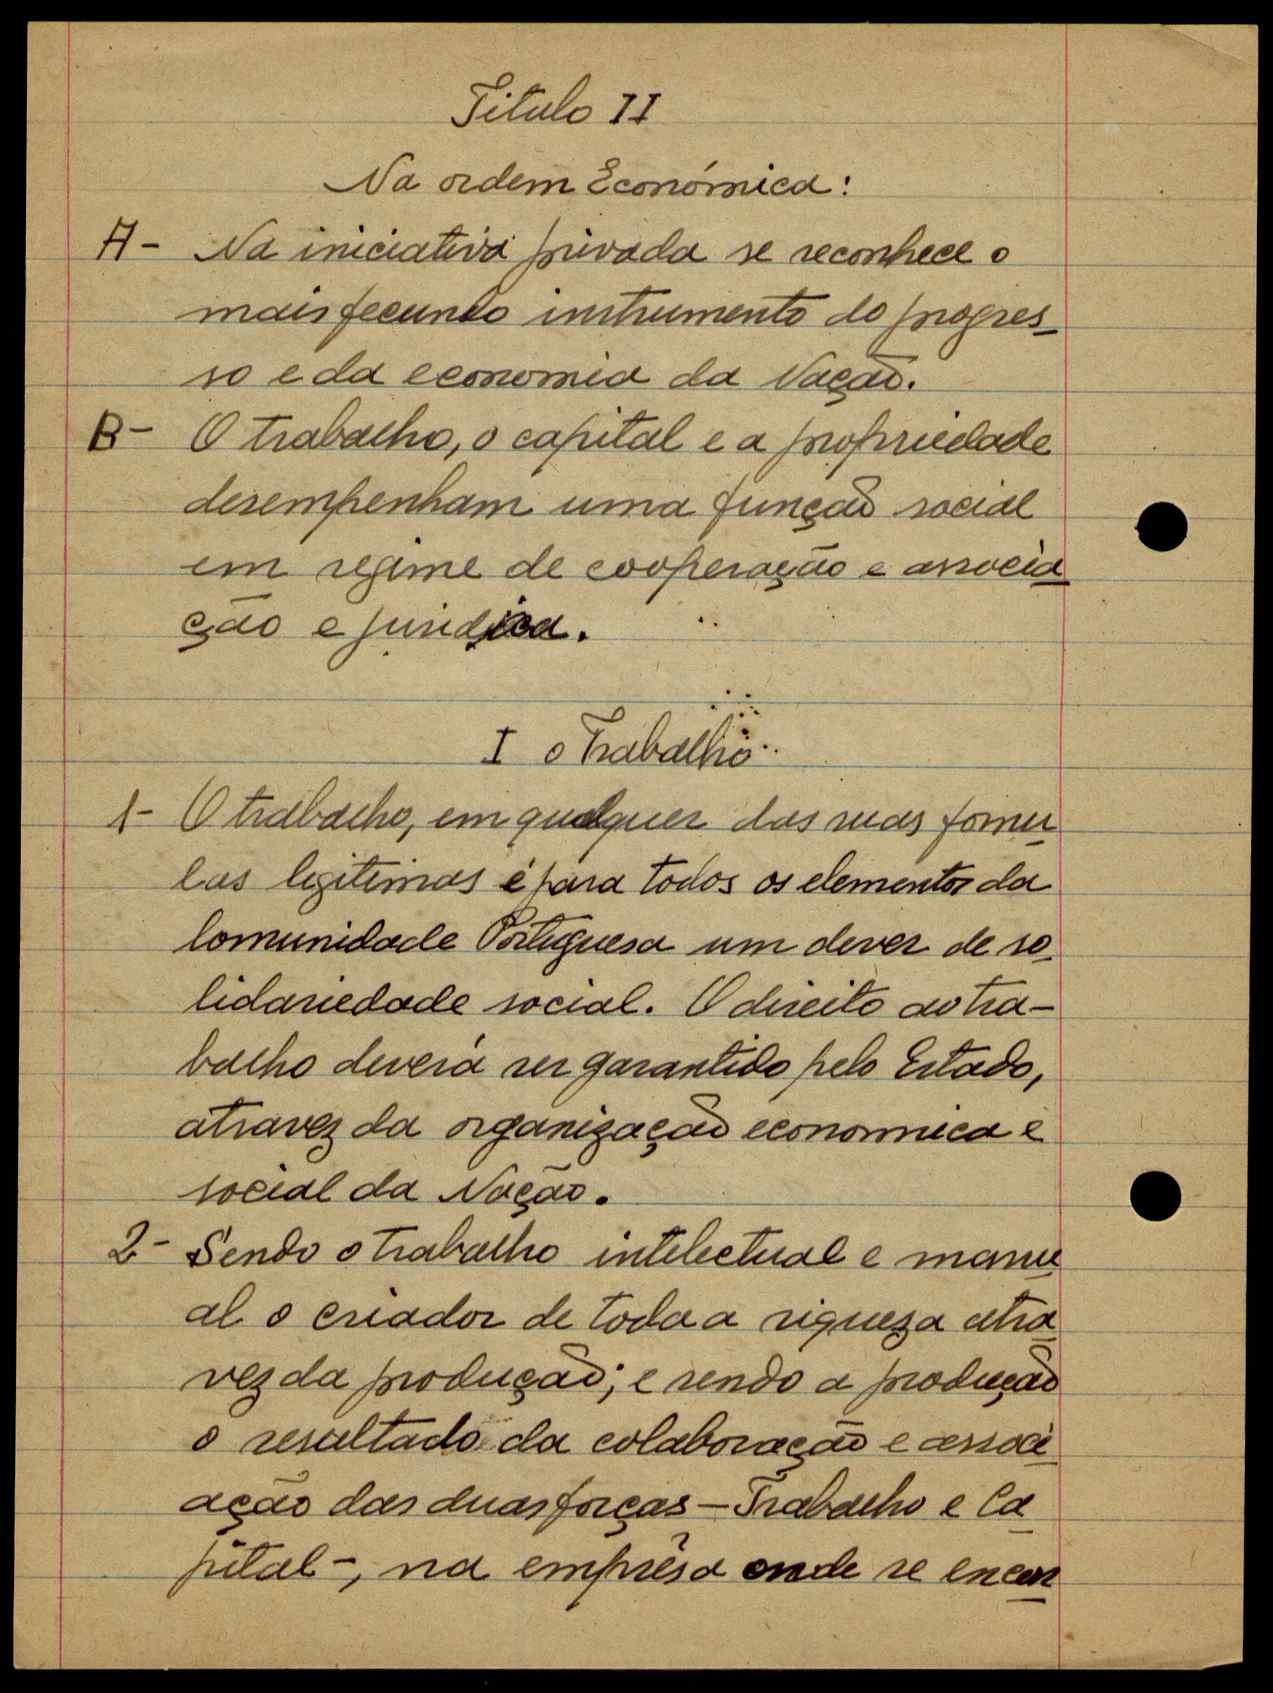 Titulo II
Na ordem Económica:
A- Na iniciativa privada se reconhece o
mais fecundo instrumento do progres-
so e da economia da Nação.
B- O trabalho, o capital e a propriedade
desempenham uma função social
em regime de cooperação e associa-
ção e juridica.
I o Trabalho
1- O trabalho, em qualquer das suas formu-
las legitimas é para todos os elementos da
Comunidade Portuguesa um dever de so-
lidariedade social. O direito ao tra-
balho deverá ser garantido pelo Estado,
atravez da organização economica e
social da Nação.
2- Sendo o trabalho intelectual e manu-
al o criador de toda a riqueza atra-
vez da produção; e sendo a produção
o resultado da colaboração e associ-
ação das duas forças - Trabalho e Ca-
pital -, na emprêsa onde se encon